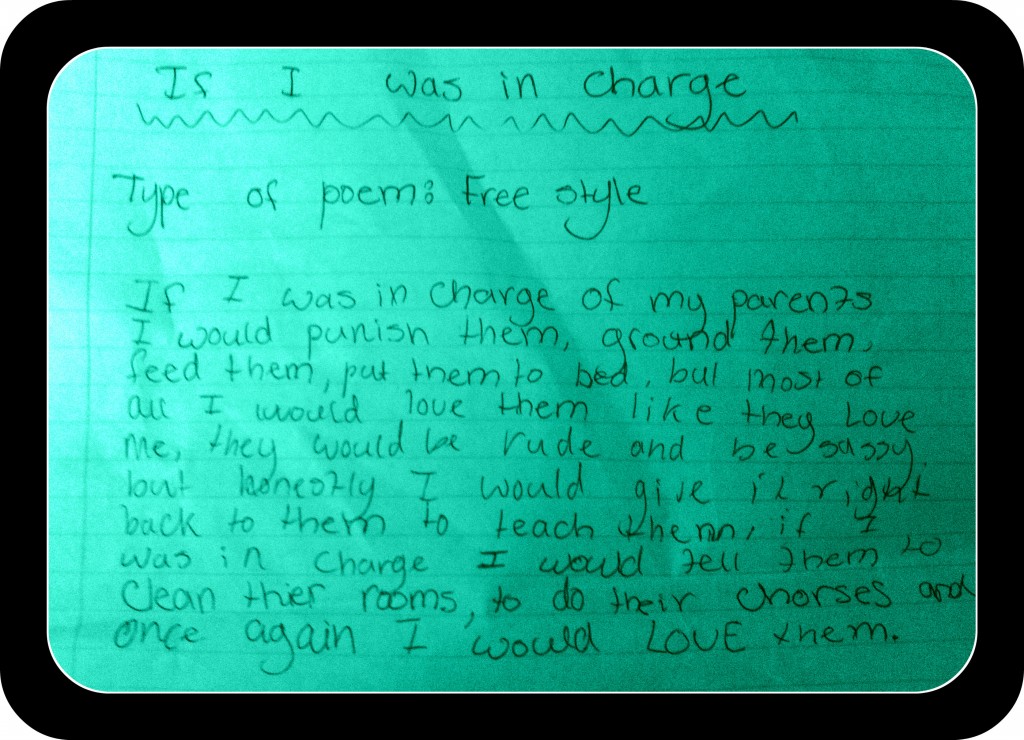 If I was in charge
Type of poem: Free style
If I was in charge of my parents
I would punish them, ground them,
feed them, put them to bed, but most of
all I would love them like they Love
me, they would be rude and be sassy
but honestly I would give it right
back to them to teach them, if I
was in charge I would tell them to
Clean thier rooms, to do their chorses and
once again I would LOVE them.